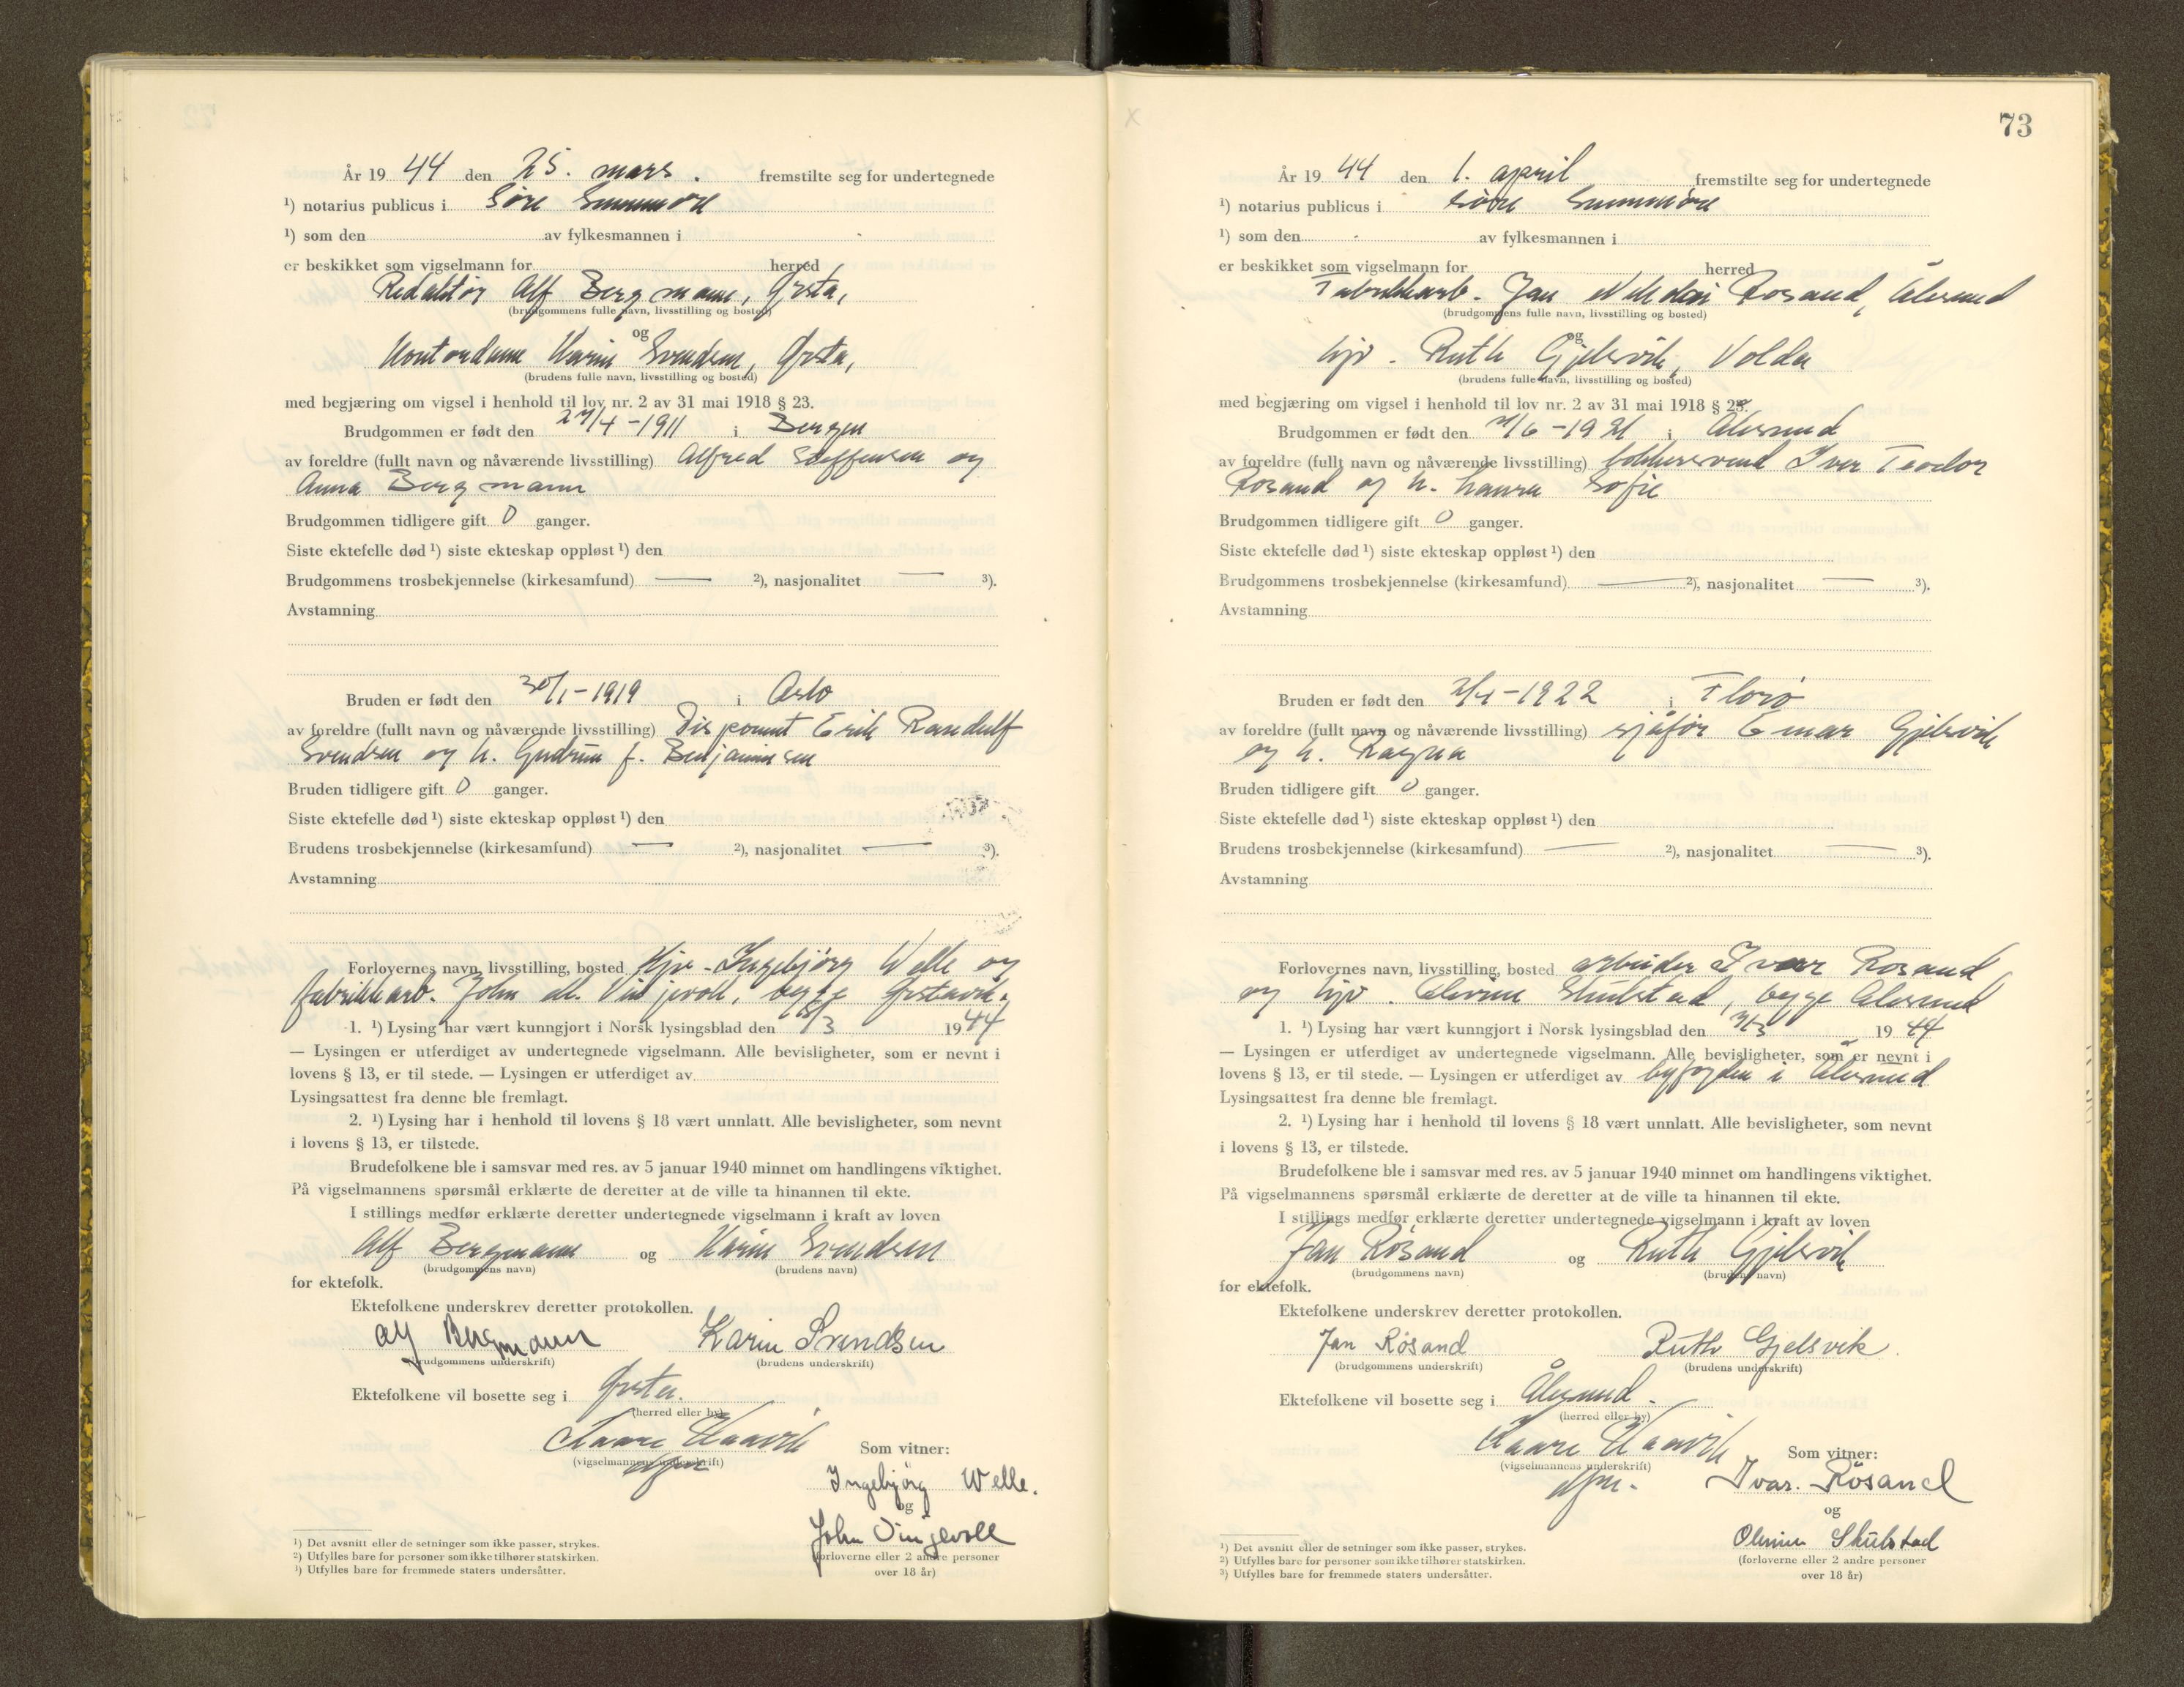 År 19 44 den 25. mars. fremstilte seg for undertegnede
¹) notarius publicus i Søre Sunnmøre
¹) som den av fylkesmannen i
er beskikket som vigselmann for herred
Redaktør Alf Bergmann, Ørsta,
(brudgommens fulle navn, livsstilling og bosted)
og
Kontordame Karin Svendsen, Ørsta,
(brudens fulle navn, livsstilling og bosted)
med begjæring om vigsel i henhold til lov nr. 2 av 31 mai 1918 § 23.
Brudgommen er født den 27/4-1911 i Bergen
av foreldre (fullt navn og nåværende livsstilling) Alfred Steffensen og
Anna Bergmann
Brudgommen tidligere gift 0 ganger.
Siste ektefelle død ¹) siste ekteskap oppløst ¹) den
Brudgommens trosbekjennelse (kirkesamfund) — ²), nasjonalitet — ³).
Avstamning
Bruden er født den 30/1-1919 i Oslo
av foreldre (fullt navn og nåværende livsstilling) Disponent Erik Randulf
Svendsen og h. Gudrun f. Benjaminsen
Bruden tidligere gift 0 ganger.
Siste ektefelle død ¹) siste ekteskap oppløst ¹) den
Brudens trosbekjennelse (kirkesamfund) — ²), nasjonalitet — ³).
Avstamning
Forlovernes navn, livsstilling, bosted Hjv. Ingebjørg Welle og
fabrikkarb. John M. Vinjevoll, begge Ørstavik.
1. ¹) Lysing har vært kunngjort i Norsk lysingsblad den /3 1944
— Lysingen er utferdiget av undertegnede vigselmann. Alle bevisligheter, som er nevnt i
lovens § 13, er til stede. — Lysingen er utferdiget av
Lysingsattest fra denne ble fremlagt.
2. ¹) Lysing har i henhold til lovens § 18 vært unnlatt. Alle bevisligheter, som nevnt
i lovens § 13, er tilstede.
Brudefolkene ble i samsvar med res. av 5 januar 1940 minnet om handlingens viktighet.
På vigselmannens spørsmål erklærte de deretter at de ville ta hinannen til ekte.
I stillings medfør erklærte deretter undertegnede vigselmann i kraft av loven
Alf Bergmann og Karin Svendsen
(brudgommens navn) (brudens navn)
for ektefolk.
Ektefolkene underskrev deretter protokollen.
Alf Bergmann Karin Svendsen
(brudgommens underskrift) (brudens underskrift)
Ektefolkene vil bosette seg i Ørsta.
(herred eller by)
Kaare Haavik
(vigselmannens underskrift)
Som vitner:
Ingebjørg Welle.
og
John Vinjevoll
(forloverne eller 2 andre personer
over 18 år)
¹) Det avsnitt eller de setninger som ikke passer, strykes.
²) Utfylles bare for personer som ikke tilhører statskirken.
³) Utfylles bare for fremmede staters undersåtter.
73
År 19 44 den 1. april fremstilte seg for undertegnede
¹) notarius publicus i Søre Sunnmøre
¹) som den av fylkesmannen i
er beskikket som vigselmann for herred
Fabrikkarb. Jan Røsand, Ålesund
(brudgommens fulle navn, livsstilling og bosted)
og
hjv. Ruth Gjelsvik, Volda
(brudens fulle navn, livsstilling og bosted)
med begjæring om vigsel i henhold til lov nr. 2 av 31 mai 1918 § 23.
Brudgommen er født den /6-1921 i Ålesund
av foreldre (fullt navn og nåværende livsstilling) Iver Teodor
Røsand og h. Laura Sofie
Brudgommen tidligere gift 0 ganger.
Siste ektefelle død ¹) siste ekteskap oppløst ¹) den
Brudgommens trosbekjennelse (kirkesamfund) — ²), nasjonalitet — ³).
Avstamning
Bruden er født den 2/4-1922 i Florø
av foreldre (fullt navn og nåværende livsstilling) sjåfør Gjelsvik
og h. Ragna
Bruden tidligere gift 0 ganger.
Siste ektefelle død ¹) siste ekteskap oppløst ¹) den
Brudens trosbekjennelse (kirkesamfund) — ²), nasjonalitet — ³).
Avstamning
Forlovernes navn, livsstilling, bosted arbeider Ivar Røsand
og hjv. Skulstad, begge Ålesund
1. ¹) Lysing har vært kunngjort i Norsk lysingsblad den /3 1944
— Lysingen er utferdiget av undertegnede vigselmann. Alle bevisligheter, som er nevnt i
lovens § 13, er til stede. — Lysingen er utferdiget av byfogden i Ålesund
Lysingsattest fra denne ble fremlagt.
2. ¹) Lysing har i henhold til lovens § 18 vært unnlatt. Alle bevisligheter, som nevnt
i lovens § 13, er tilstede.
Brudefolkene ble i samsvar med res. av 5 januar 1940 minnet om handlingens viktighet.
På vigselmannens spørsmål erklærte de deretter at de ville ta hinannen til ekte.
I stillings medfør erklærte deretter undertegnede vigselmann i kraft av loven
Jan Røsand og Ruth Gjelsvik
(brudgommens navn) (brudens navn)
for ektefolk.
Ektefolkene underskrev deretter protokollen.
Jan Røsand Ruth Gjelsvik
(brudgommens underskrift) (brudens underskrift)
Ektefolkene vil bosette seg i Ålesund.
(herred eller by)
Kaare Haavik
(vigselmannens underskrift)
Som vitner:
Ivar. Røsand
og
Skulstad
(forloverne eller 2 andre personer
over 18 år)
¹) Det avsnitt eller de setninger som ikke passer, strykes.
²) Utfylles bare for personer som ikke tilhører statskirken.
³) Utfylles bare for fremmede staters undersåtter.